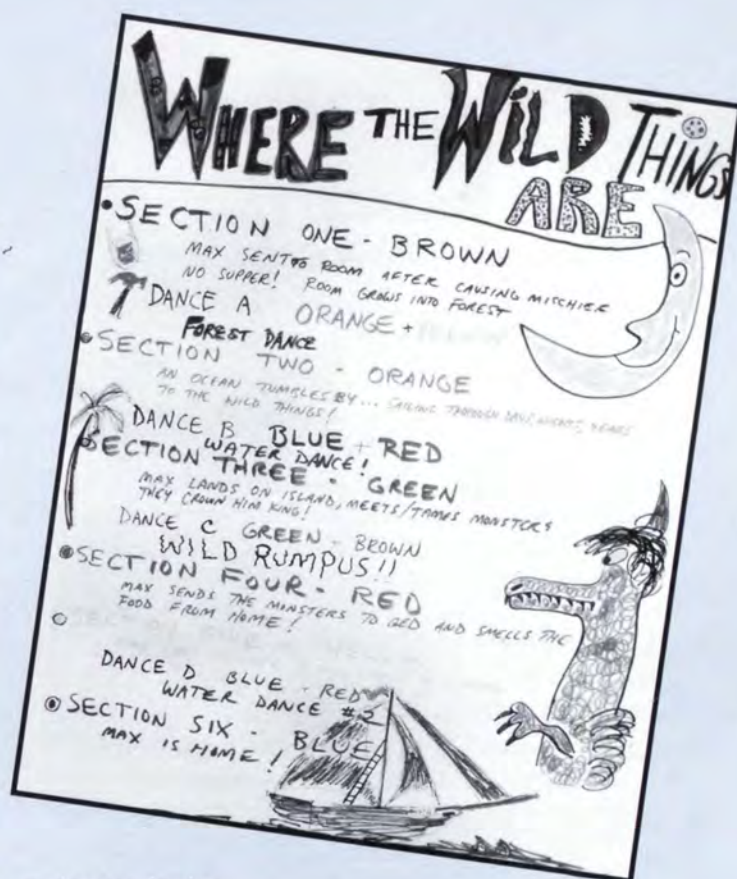 WHERE THE WILD THINGS
ARE
SECTION ONE - BROWN
MAX SENT TO ROOM AFTER CAUSING MISCHIEF
NO SUPPER! ROOM GROWS INTO FOREST
DANCE A ORANGE +
FOREST DANCE
SECTION TWO - ORANGE
AN OCEAN TUMBLES BY... SAILING THROUGH DAYS, NIGHTS, YEARS
TO THE WILD THINGS!
DANCE B BLUE + RED
WATER DANCE!
SECTION THREE - GREEN
MAX LANDS ON ISLAND, MEETS/TAMES MONSTERS
THEY CROWN HIM KING!
DANCE C GREEN - BROWN
WILD RUMPUS!!
SECTION FOUR - RED
MAX SENDS THE MONSTERS TO BED AND SMELLS THE
FOOD FROM HOME!
DANCE D BLUE - RED
WATER DANCE #2
SECTION SIX - BLUE
MAX IS HOME!